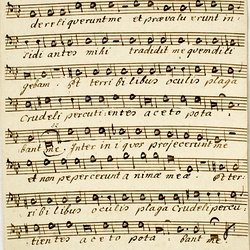 dereliquerunt me et prævaluerunt in
ridi antes mihi tradidit me quem dili
gebam. Et terri bi libus oculis plaga
Crudeli percuti entes aceto pota
bant me. Inter ini quos projecerunt me
et non pepercerunt animæ meæ. Et ter:
ri bi libus oculis plaga Crudeli percu:
tientes aceto pota bant